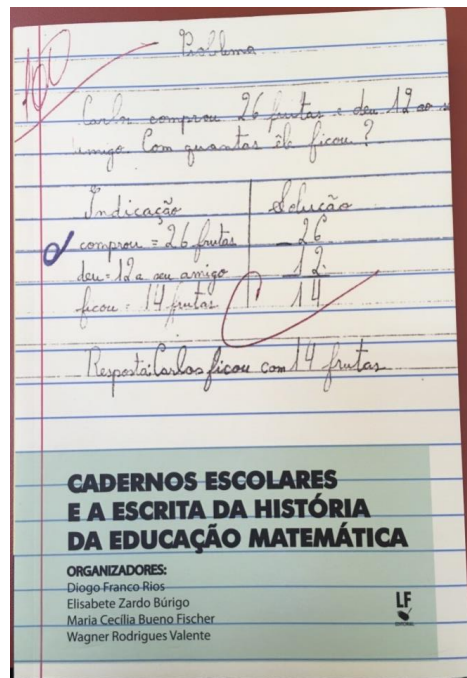 100
Problema
Carlos comprou 26 frutas e deu 12 ao s
amigo. Com quantas êle ficou?
Indicação Solução
comprou = 26 frutas 26
deu = 12 a seu amigo 12
ficou = 14 frutas 14
Resposta: Carlos ficou com 14 frutas
CADERNOS ESCOLARES
E A ESCRITA DA HISTÓRIA
DA EDUCAÇÃO MATEMÁTICA
ORGANIZADORES:
Diogo Franco Rios
Elisabete Zardo Búrigo
Maria Cecília Bueno Fischer
Wagner Rodrigues Valente
LF
EDITORIAL